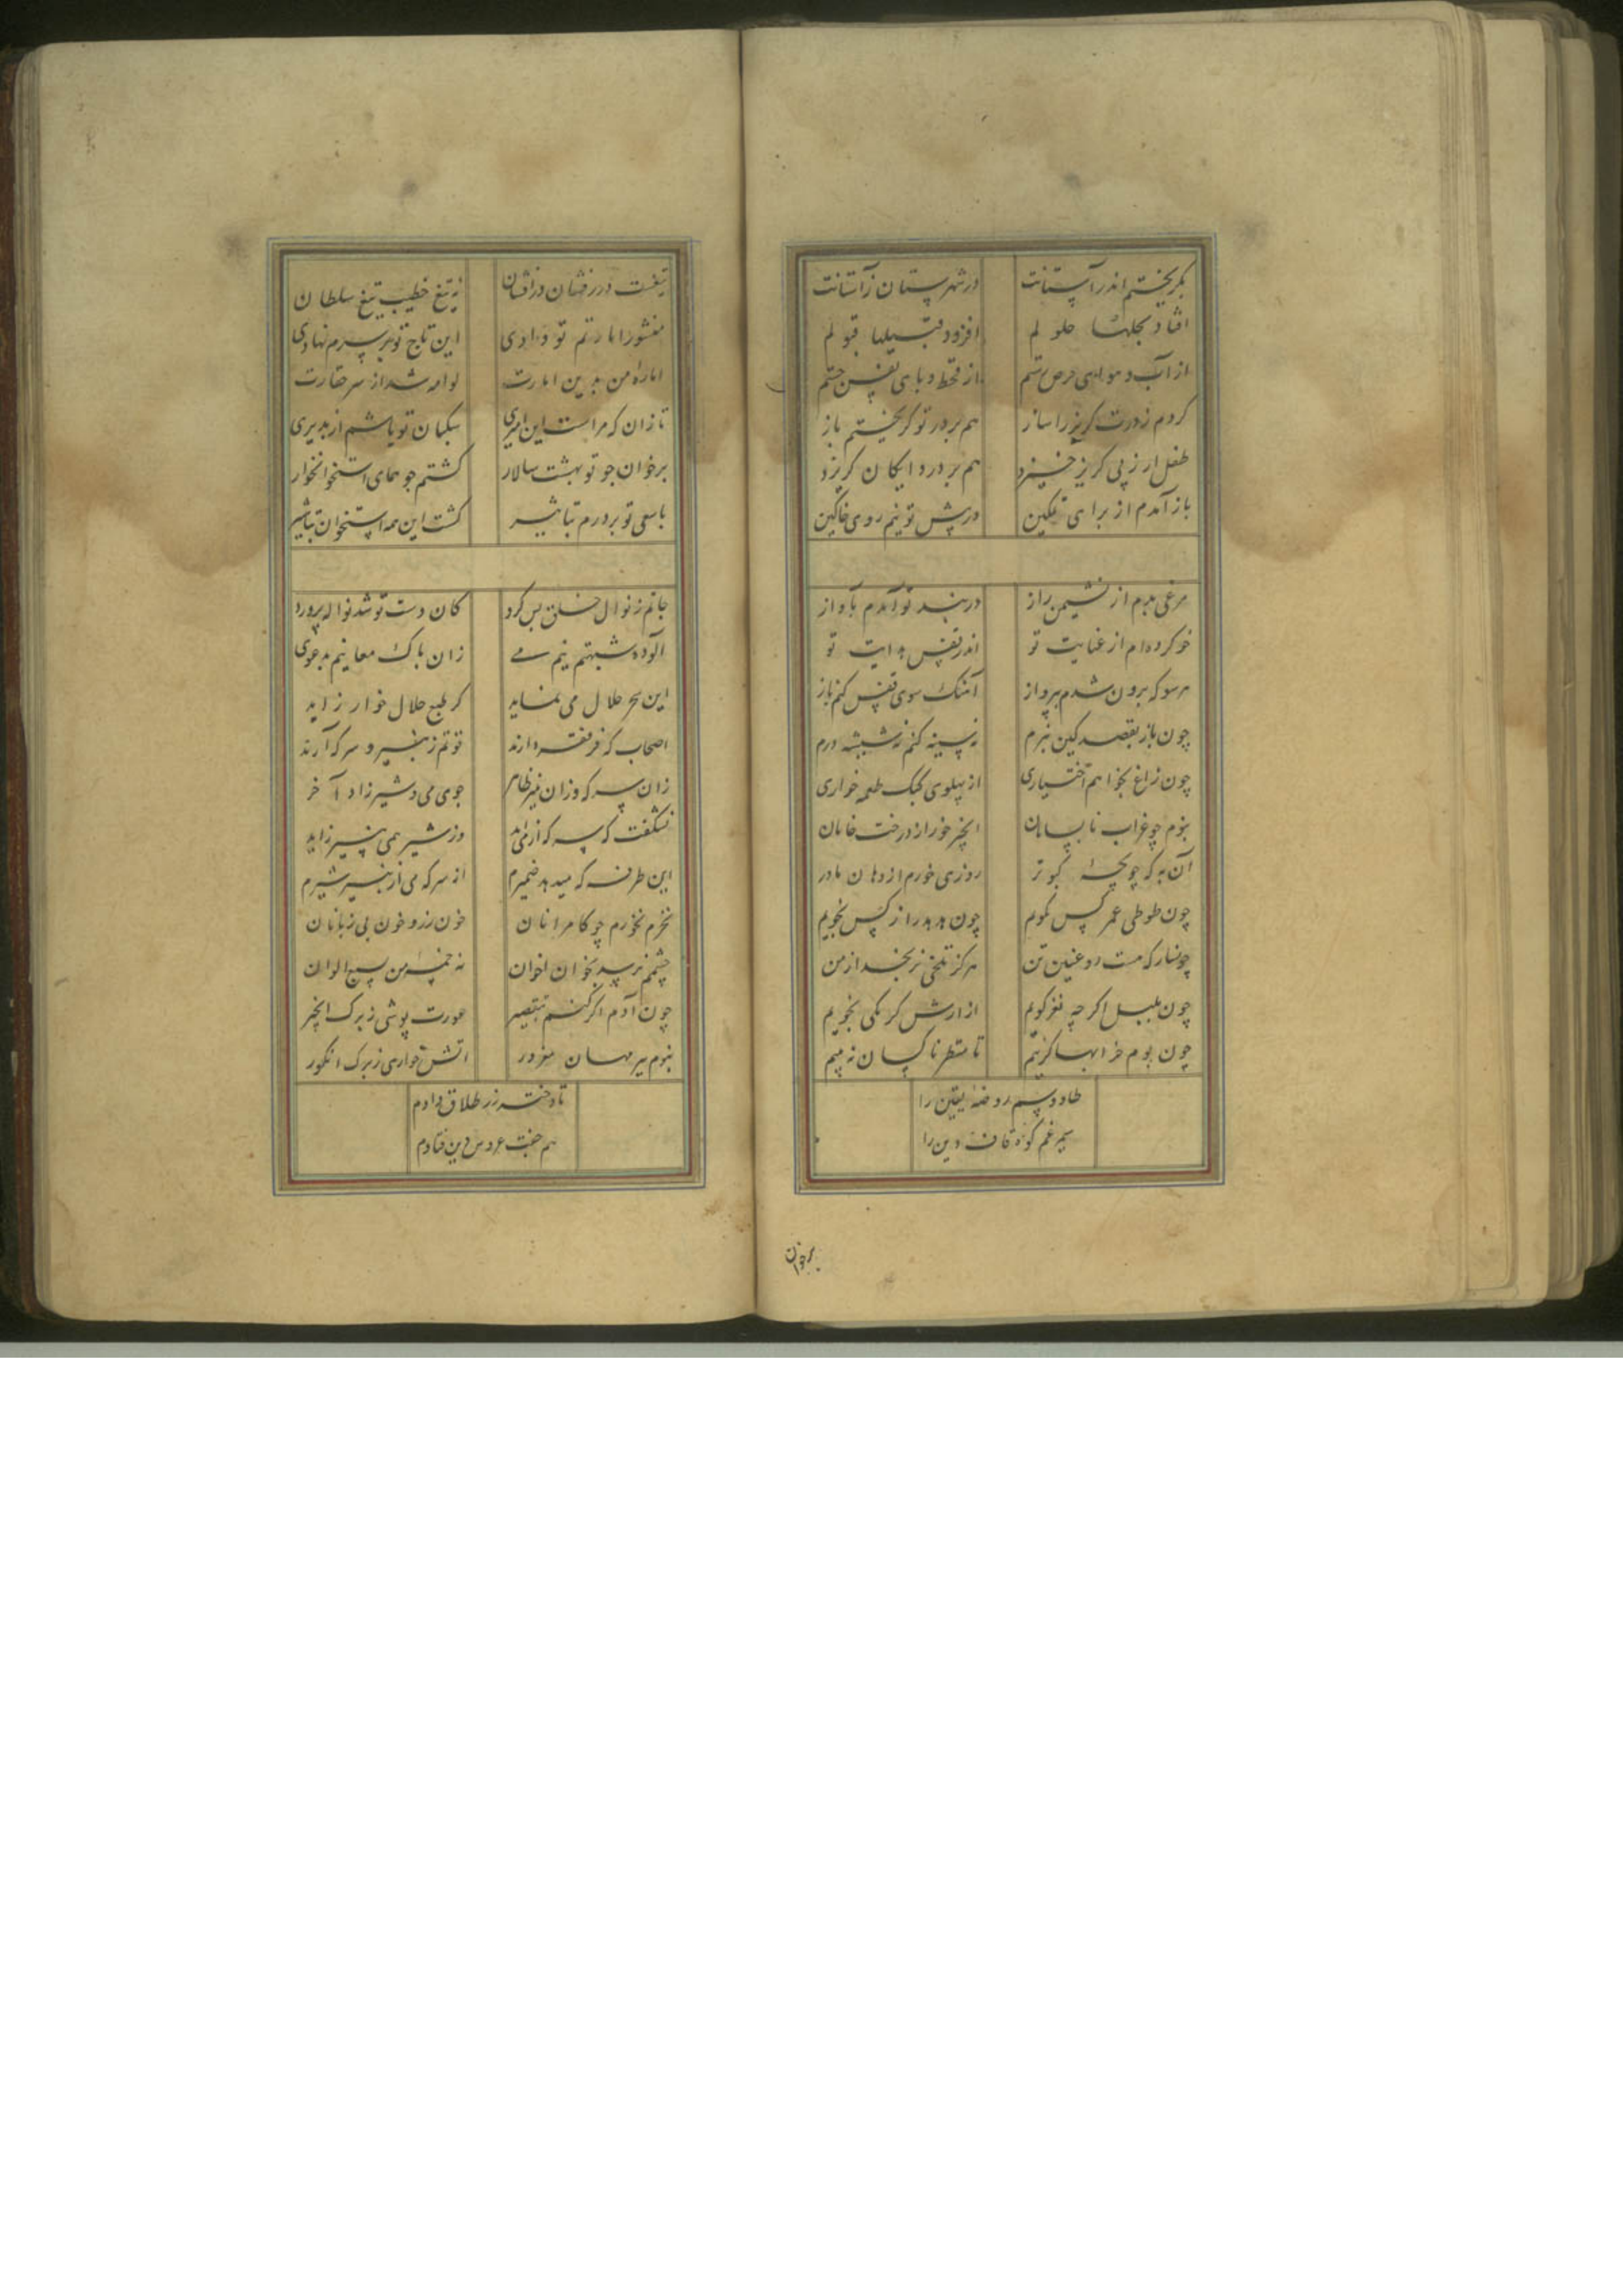 بگریختم اندر آستانت در شهرستان ز آستانت
افتاد بجلها حلولم افزود قبیلها قبولم
از آب و هوای حرص رستم از قحط و بای نفس جستم
کردم ز درت گریز را ساز هم بر در تو گریختم باز
طفل ار ز پی گریز خیزد هم بر در دایگان گریزد
باز آمدم از برای تمکین در پیش تو نیم روی خاکین
مرغی بدم از نشیمن راز در بند تو آمدم بآواز
خو کرده‌ام از عنایت تو اندر قفس هدایت تو
هر سو که برون شدم بپرواز آهنگ سوی قفس کنم باز
چون باز بقصد کین نبرم نه سینه کنم نه شیشه درم
چون زاغ نخواهم اختیاری از پهلوی کبک طعمه خواری
نبوم چو غراب نابسامان انجیر خور از درخت خامان
آن به که چو بچهٔ کبوتر روزی خورم از دهان مادر
چون طوطی عمر کس نگویم چون هدهد راز کس نجویم
چون سار که هست روغنین تن هرگز تلخی نریخد از من
چون بلبل اگر چه نغز گویم از ارزش کرمکی نجویم
چون بوم خرابها گزینم تا منظر ناکسان نه بینم
طاووسم روضه یقین را
سیمرغم کوه قاف دین را
برخوان
تیغست درفشان در افشان نه تیغ خطیب تیغ سلطان
منشور امارتم تو دادی این تاج تو بر سرم نهادی
اماره من بدین امارت لوامه شد از سر حقارت
تا زان که مراست این امیری سکبان تو باشم ار پذیری
بر خوان جو تو بهشت سالار کشتم جو همای استخوانخوار
با سعی تو بر درم تباشیر کشت این همه استخوان تباشیر
جانم ز نوال خلق بس کرد کان دست تو شد نواله پرورد
آلوده شبهتم نیم من زان پاک معانیم بدعوی
این سحر حلال می نماید کز طبع حلال خوار زاید
اصحاب که فر فقر دارند قوتم ز پنیر و سرکه آرند
زان سرکه وزان پنیر ظاهر جوی می و شیر زاد آخر
نشگفت که سرکه از می آید وز شیر همی پنیر زاید
این طرفه که میدهد ضمیرم از سرکه می از پنیر شیرم
نخرم نخورم چو کامرانان خون رز و خون بی زبانان
چشمم نرسد بخوان اخوان نه خمسه من بسبع الوان
چون آدم اگر کنم بتقصیر عورت پوشی ز برگ انجیر
نبوم بر مهمان مغرور آتش خواری ز برگ انگور
تا دختر رز طلاق دادم
هم جفت عروس دین فتادم